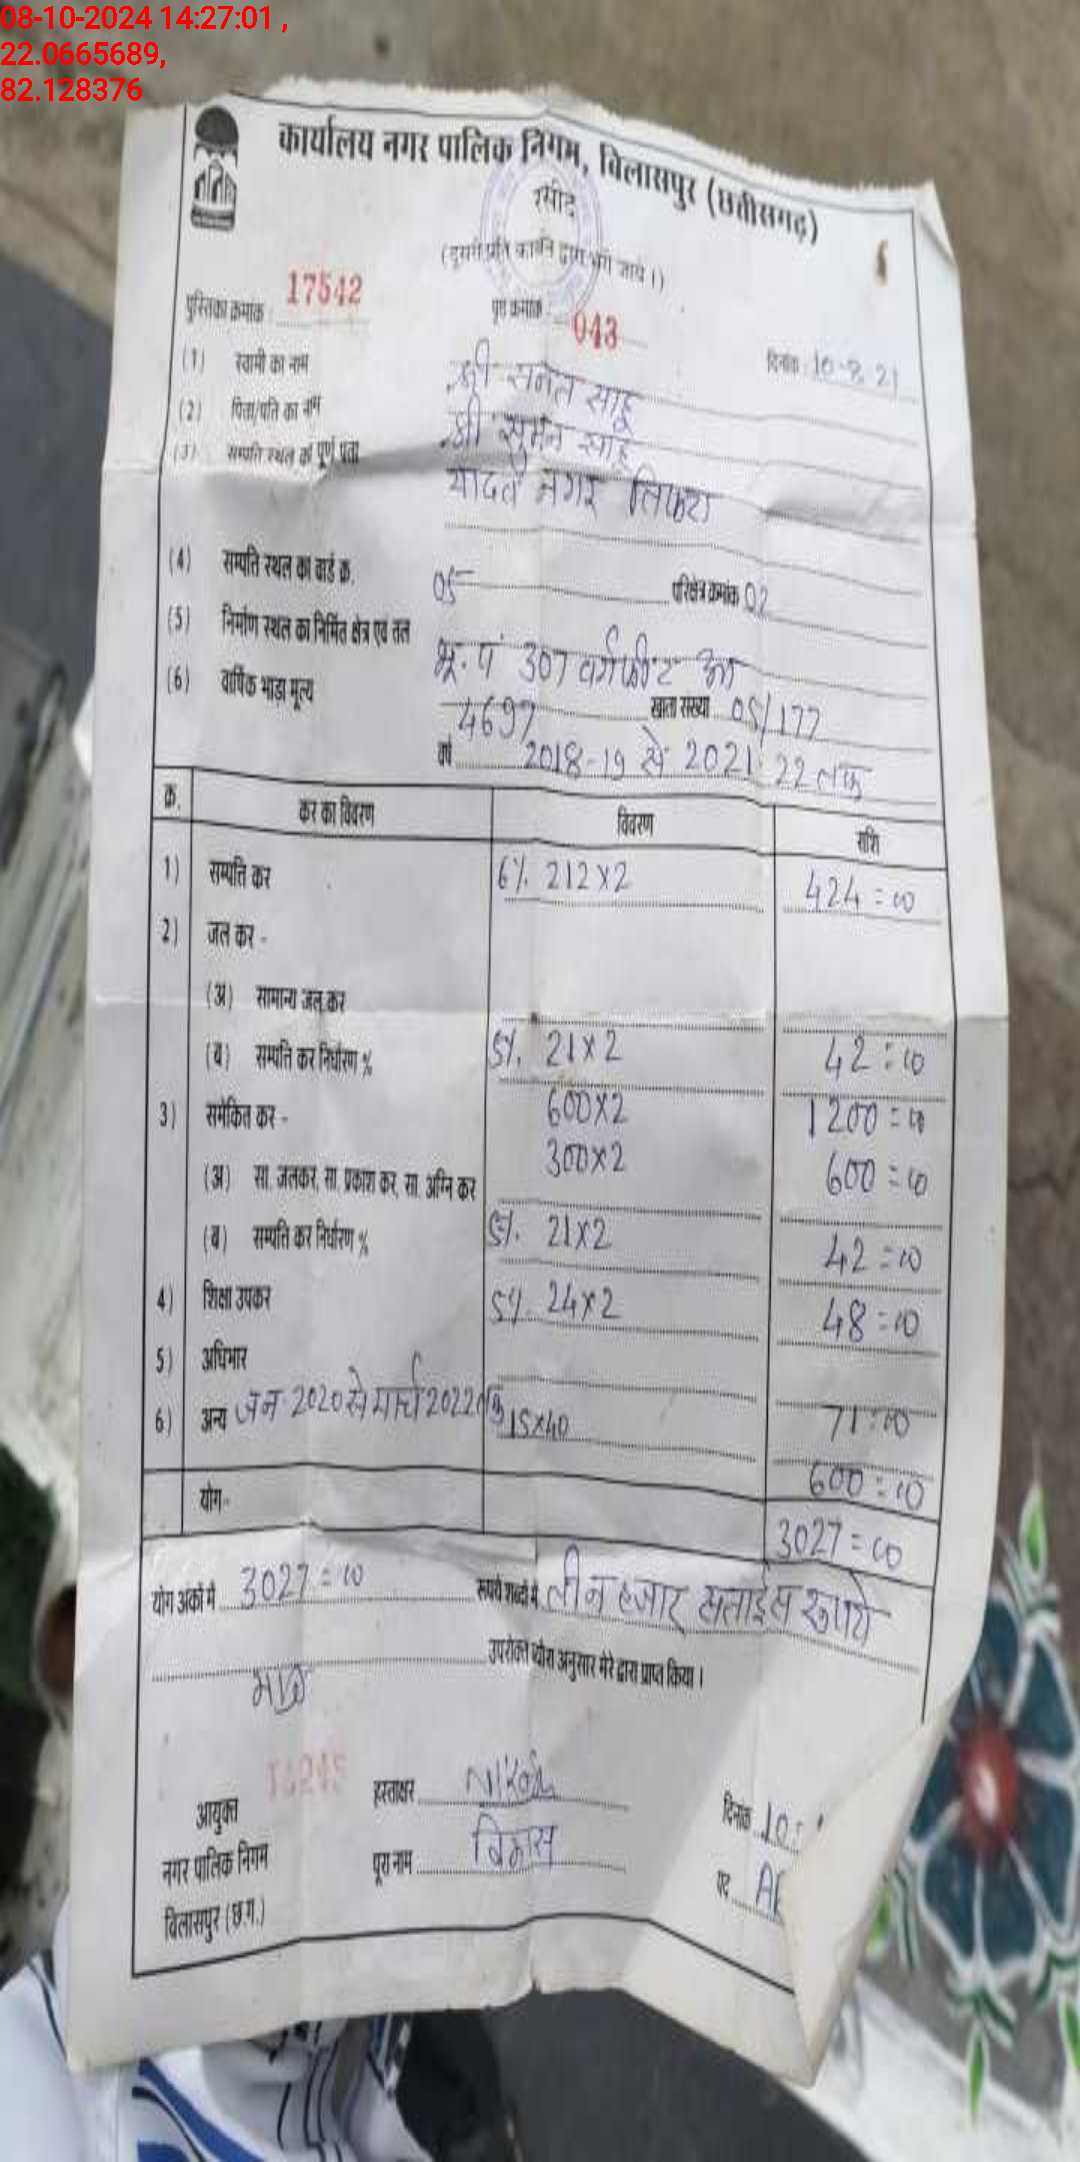 08-10-2024 14:27:01 ,
22.0665689,
82.128376
कार्यालय नगर पालिक निगम, विलासपुर (छत्तीसगढ़)
रसीद
(दूसरी प्रति कार्बन द्वारा भरी जाये ।)
पुस्तिका क्रमांक 17542 पृष्ठ क्रमांक 043
दिनांक 10-8-21
(1) स्वामी का नाम श्री सनत साहू
(2) पिता/पति का नाम श्री सुमन साहू
(3) सम्पति स्थल का पूर्ण पता यादव नगर तिफरा
(4) सम्पति स्थल का वार्ड क्र. 05 परिक्षेत्र क्रमांक 02
(5) निर्माण स्थल का निर्मित क्षेत्र एवं तल भू. पं 307 वर्गफीट
(6) वार्षिक भाड़ा मूल्य 4697 खाता संख्या 05/177
वर्ष 2018-19 से 2021-22 तक
क्र. कर का विवरण विवरण राशि
1) सम्पत्ति कर 6% 212×2 424=00
2) जल कर -
(अ) सामान्य जल कर
(ब) सम्पत्ति कर निर्धारण % 5% 21×2 42=00
3) समेकित कर - 600×2 1200=00
300×2 600=00
(अ) सा. जलकर, सा. प्रकाश कर, सा. अग्नि कर
(ब) सम्पत्ति कर निर्धारण % 5% 21×2 42=00
4) शिक्षा उपकर 5% 24×2 48=00
5) अधिभार 71=00
6) अन्य जन 2020 से मार्च 2022 तक 15×40 600=00
योग- 3027=00
योग अंकों में 3027=00 रूपये शब्दों में तीन हजार सताईस रूपये
मात्र उपरोक्त ब्यौरा अनुसार मेरे द्वारा प्राप्त किया ।
आयुक्त हस्ताक्षर दिनांक 10
नगर पालिक निगम पूरा नाम विकास पद
विलासपुर (छ.ग.)